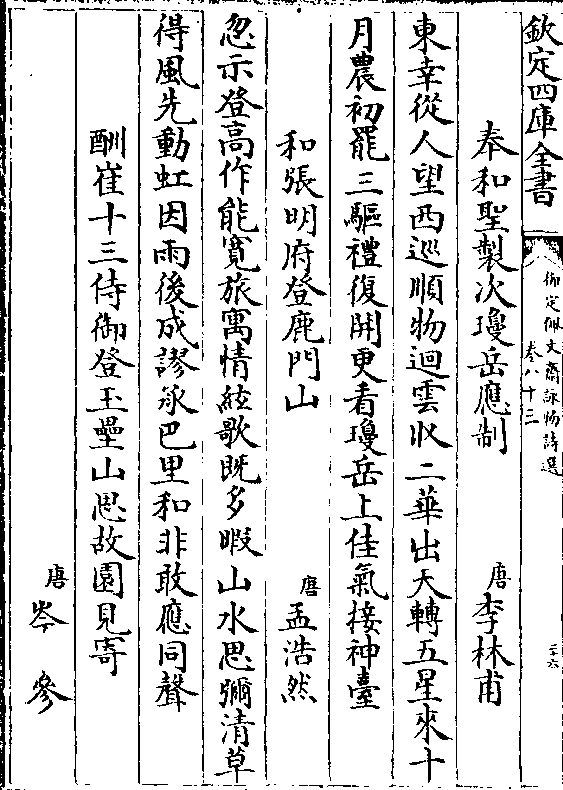 欽定四庫全書
御定佩文齋詠物詩選
卷八十三
二十六
奉和聖製次瓊岳應制
唐李林甫
東幸從人望西巡順物迴雲收二華出天轉五星來十
月農初罷三驅禮復開更看瓊岳上佳氣接神臺
和張明府登鹿門山
唐孟浩然
忽示登高作能寛旅寓情絃歌既多暇山水思彌清草
得風先動虹因雨後成謬承巴里和非敢應同聲
酬崔十三侍御登玉壘山思故園見寄
唐岑參